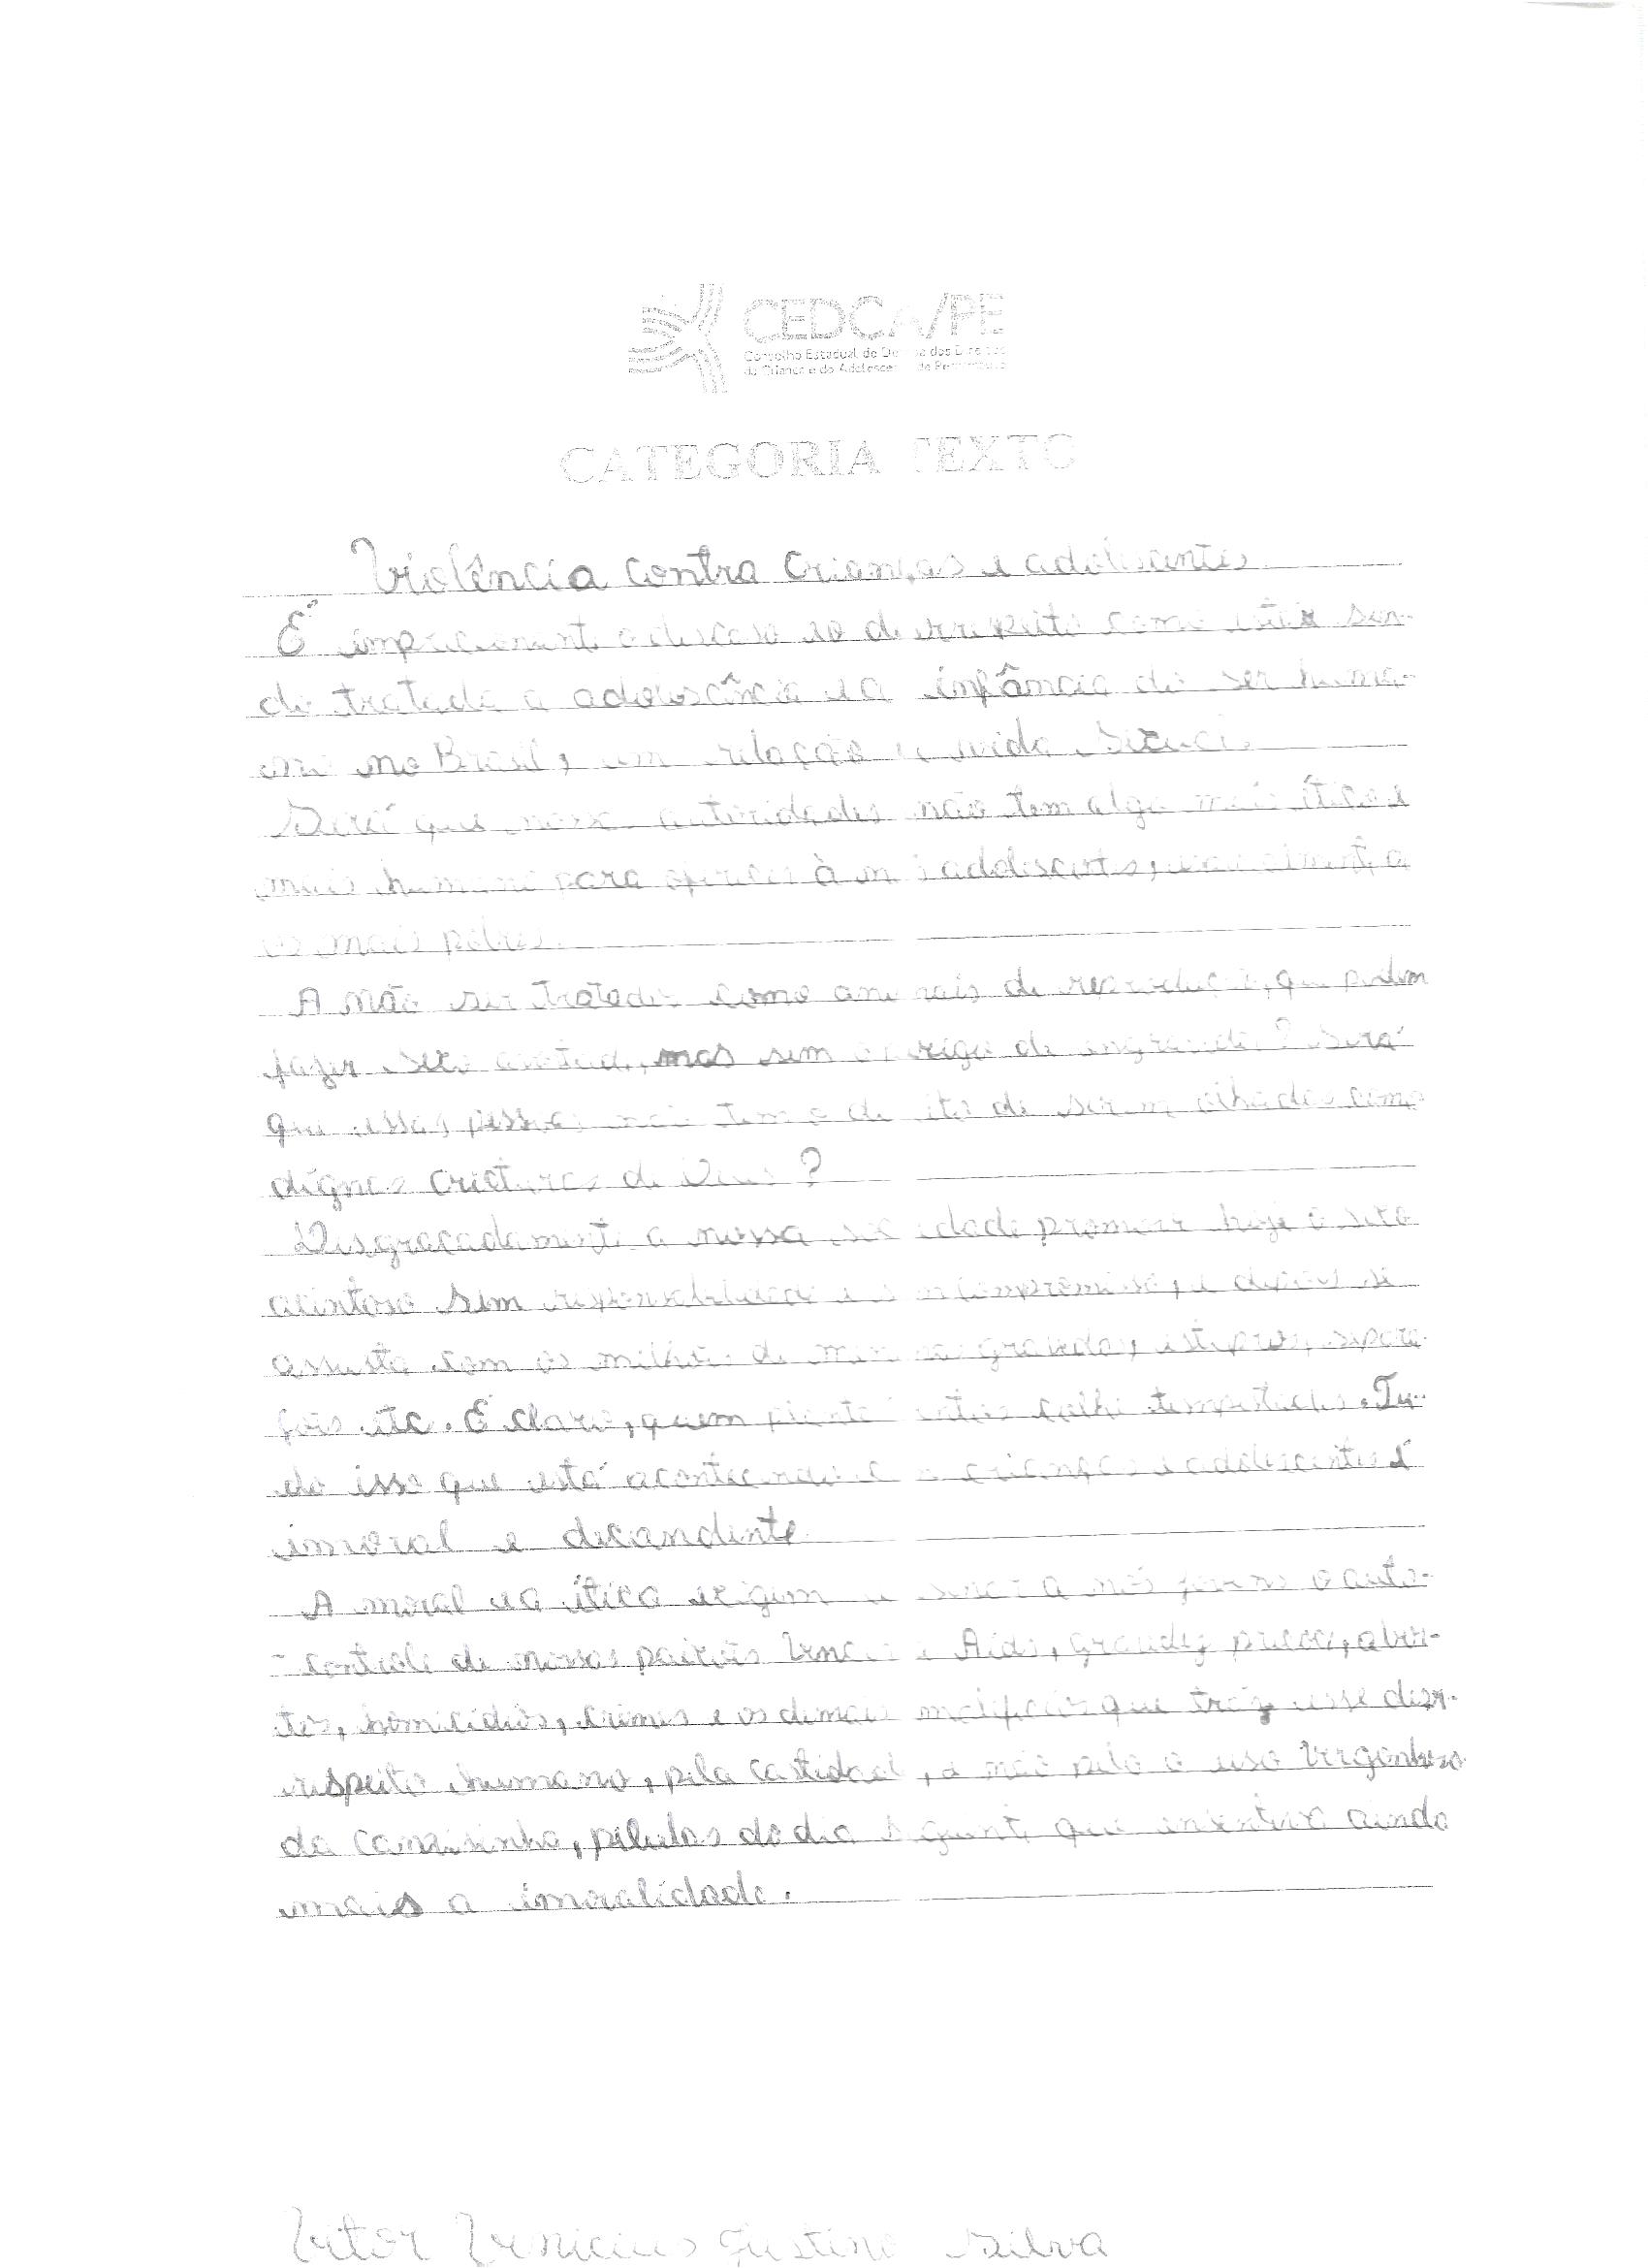 CEDCA/PE
Conselho Estadual de Defesa dos Direitos
da Criança e do Adolescente de Pernambuco
CATEGORIA TEXTO
Violência contra Crianças e adolescentes
É impressionante o descaso e o desrrespeito como está sen-
do tratada a adolescência e a infância do ser huma-
no no Brasil, em relação a vida sexual.
Será que nossas autoridades não tem algo mais ético e
mais humano para oferecer à adolescentes, a
os mais pobres.
A não ser tratados como animais de reprodução, que podem
fazer sexo avontade, mas sem o perigo de engravidar? Será
que essas pessoas não tem o direito de serem olhadas como
dignas criaturas de Deus?
Desgraçadamente a nossa sociedade promove hoje o sexo
acintoso sem responsabilidade e sem compromisso, e depois se
assusta com os milhões de meninas gravidas, estupros, separa-
çois etc. É claro, quem planta ventos colhe tempestades. Tu-
do isso que está acontecendo a crianças e adolescentes é
imoral e decandente
A moral e a ética exigem a nós jovens o auto-
-controle de nossas paixões Vencer a Aids, gravidez precoce, abor-
tos, homicidios, crimes e os demais maleficios que traz esse desr-
respeito humano, pela castidade, e não pelo o uso Vergonhoso
da camisinha, pilulas do dia seguinte que incentiva ainda
mais a imoralidade.
Vitor Vinicius Justino Silva